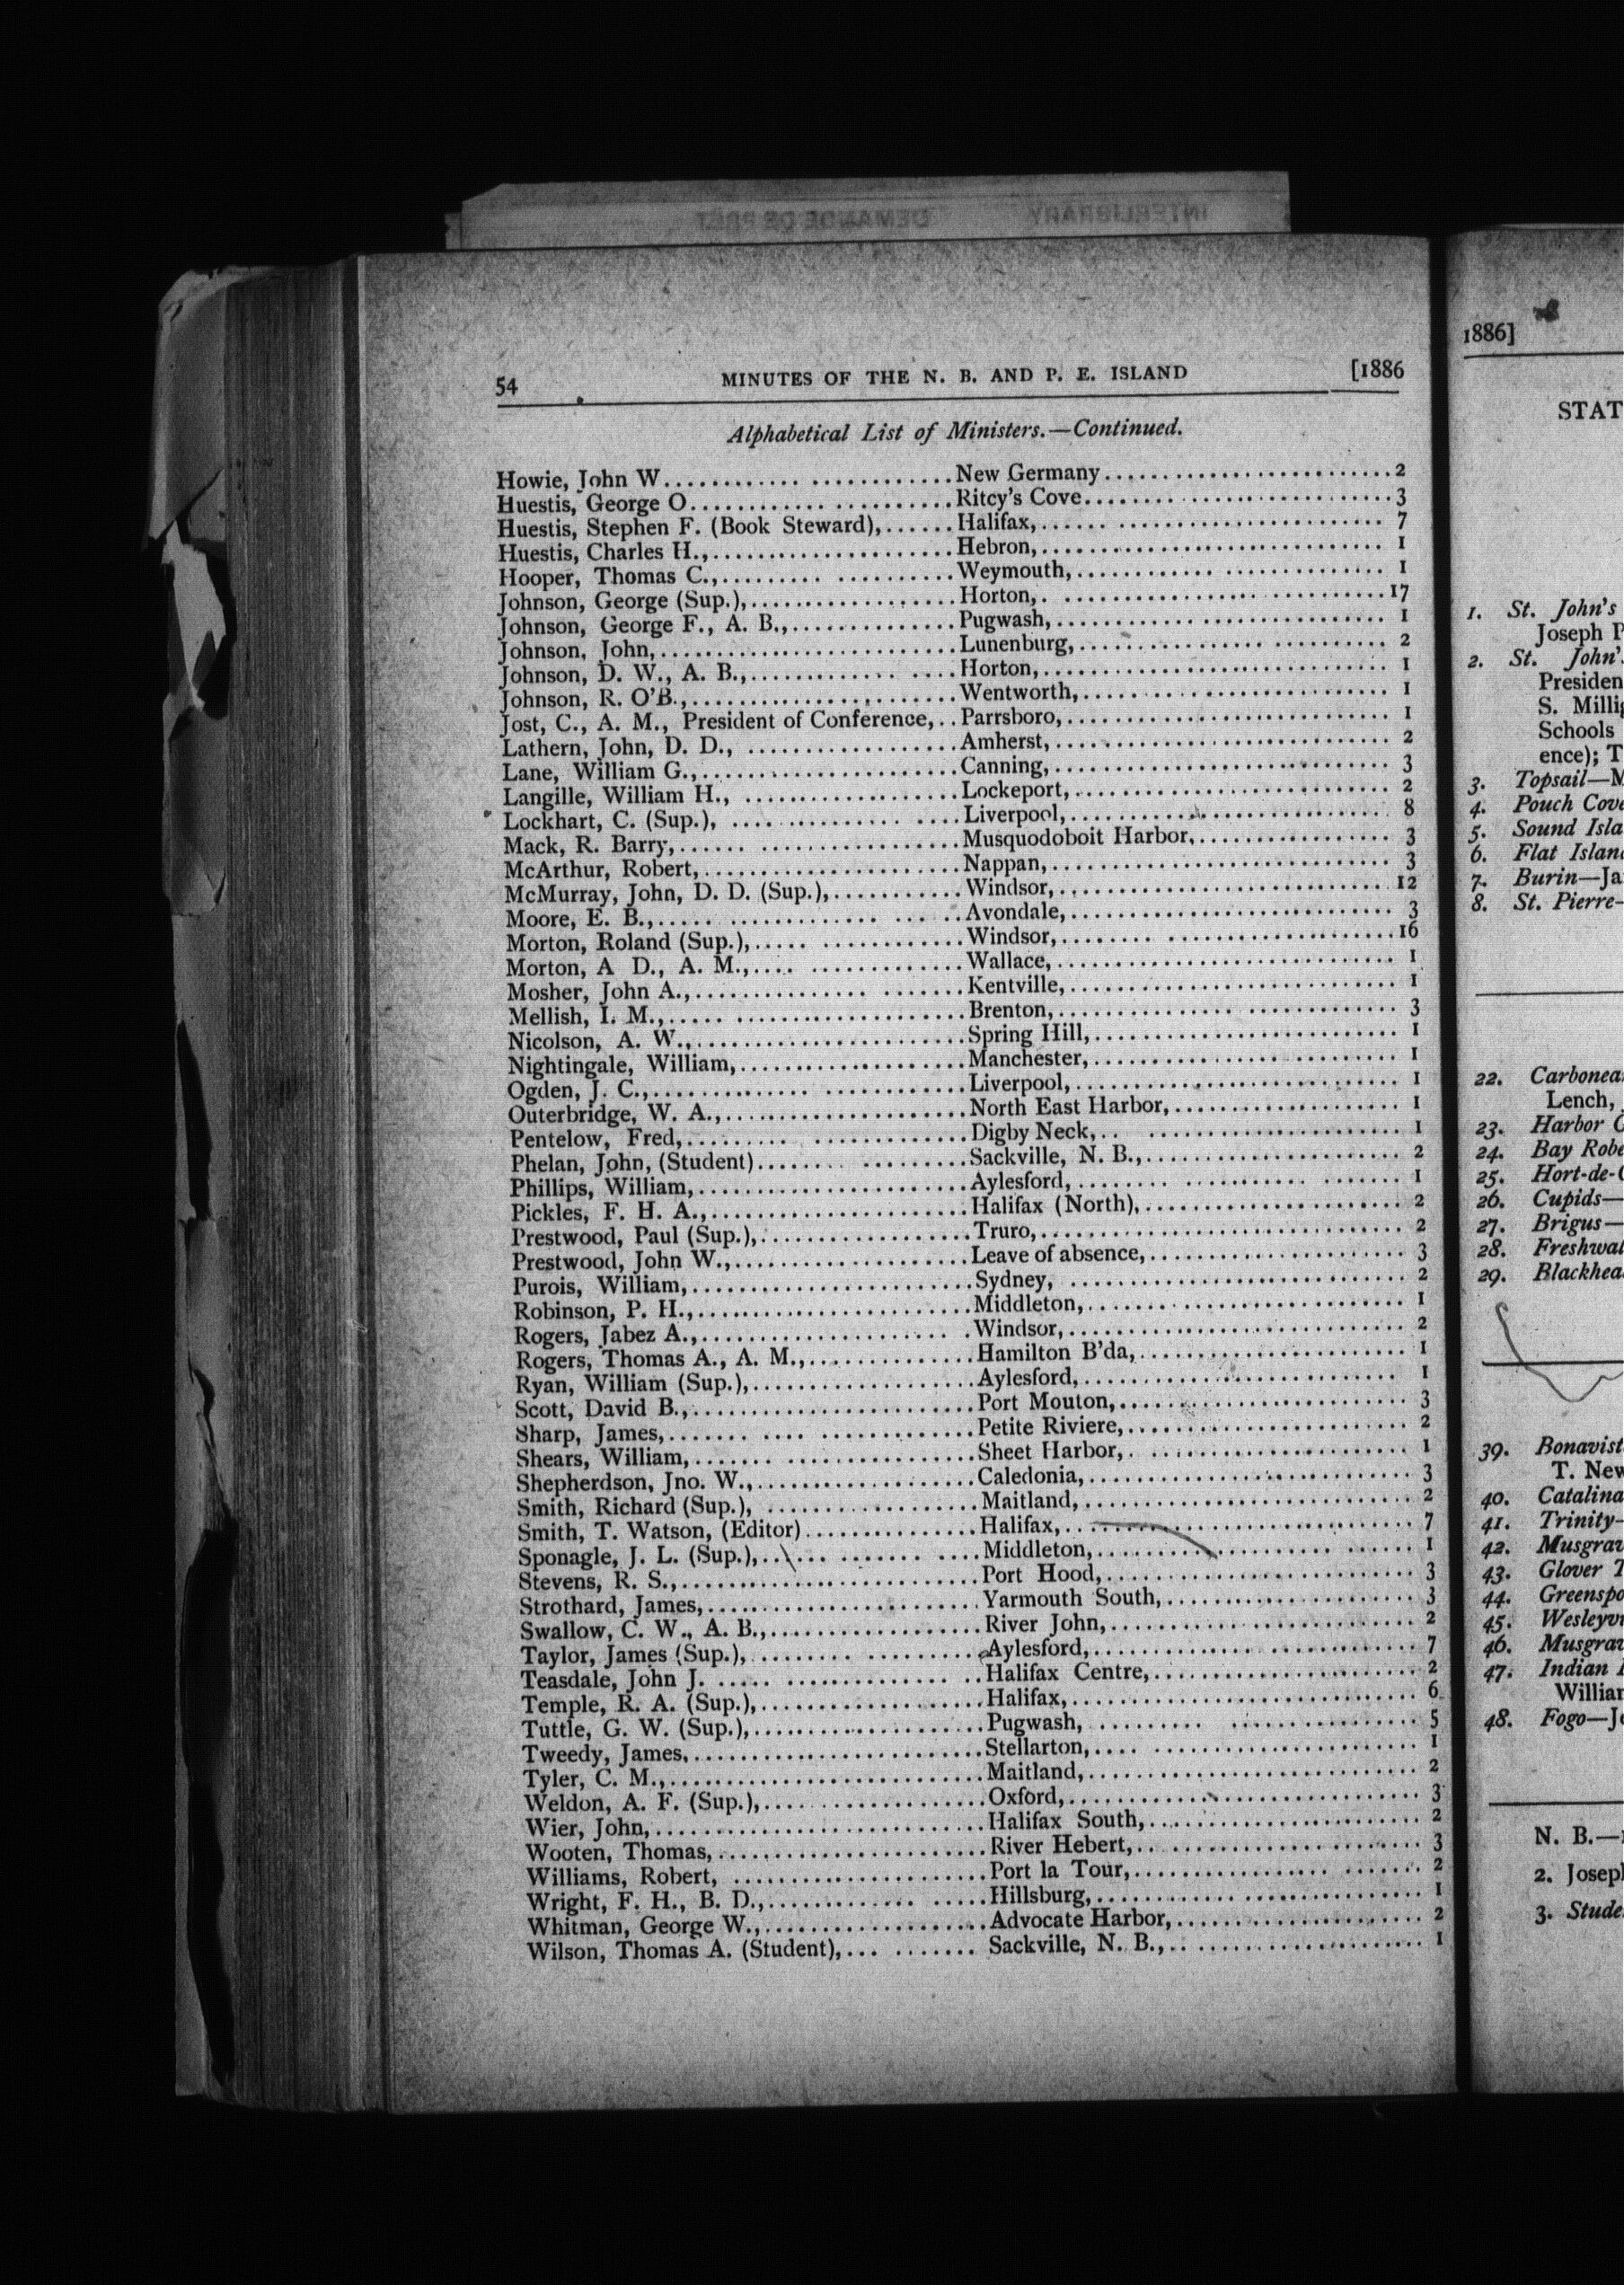 INTERLIBRARY DEMANDE DE PRET
54 MINUTES OF THE N. B. AND P. E. ISLAND [1886
Alphabetical List of Ministers.—Continued.
Howie, John W. New Germany 2
Huestis, George O. Ritcy's Cove 3
Huestis, Stephen F. (Book Steward), Halifax, 7
Huestis, Charles H., Hebron, 1
Hooper, Thomas C., Weymouth, 1
Johnson, George (Sup.), Horton, 17
Johnson, George F., A. B., Pugwash, 1
Johnson, John, Lunenburg, 2
Johnson, D. W., A. B., Horton, 1
Johnson, R. O'B., Wentworth, 1
Jost, C., A. M., President of Conference, Parrsboro, 1
Lathern, John, D. D., Amherst, 2
Lane, William G., Canning, 3
Langille, William H., Lockeport, 2
Lockhart, C. (Sup.), Liverpool, 8
Mack, R. Barry, Musquodoboit Harbor, 3
McArthur, Robert, Nappan, 3
McMurray, John, D. D. (Sup.), Windsor, 12
Moore, E. B., Avondale, 3
Morton, Roland (Sup.), Windsor, 16
Morton, A D., A. M., Wallace, 1
Mosher, John A., Kentville, 1
Mellish, I. M., Brenton, 3
Nicolson, A. W., Spring Hill, 1
Nightingale, William, Manchester, 1
Ogden, J. C., Liverpool, 1
Outerbridge, W. A., North East Harbor, 1
Pentelow, Fred, Digby Neck, 1
Phelan, John, (Student) Sackville, N. B., 2
Phillips, William, Aylesford, 1
Pickles, F. H. A., Halifax (North), 2
Prestwood, Paul (Sup.), Truro, 2
Prestwood, John W., Leave of absence, 3
Purois, William, Sydney, 2
Robinson, P. H., Middleton, 1
Rogers, Jabez A., Windsor, 2
Rogers, Thomas A., A. M., Hamilton B'da, 1
Ryan, William (Sup.), Aylesford, 1
Scott, David B., Port Mouton, 3
Sharp, James, Petite Riviere, 2
Shears, William, Sheet Harbor, 1
Shepherdson, Jno. W., Caledonia, 3
Smith, Richard (Sup.), Maitland, 2
Smith, T. Watson, (Editor) Halifax, 7
Sponagle, J. L. (Sup.), Middleton, 1
Stevens, R. S., Port Hood, 3
Strothard, James, Yarmouth South, 3
Swallow, C. W., A. B., River John, 2
Taylor, James (Sup.), Aylesford, 7
Teasdale, John J. Halifax Centre, 2
Temple, R. A. (Sup.), Halifax, 6
Tuttle, G. W. (Sup.), Pugwash, 5
Tweedy, James, Stellarton, 1
Tyler, C. M., Maitland, 2
Weldon, A. F. (Sup.), Oxford, 3
Wier, John, Halifax South, 2
Wooten, Thomas, River Hebert, 3
Williams, Robert, Port la Tour, 2
Wright, F. H., B. D., Hillsburg, 1
Whitman, George W., Advocate Harbor, 2
Wilson, Thomas A. (Student), Sackville, N. B., 1
1886]
STAT
1. St. John's
Joseph P
2. St. John'
Presiden
S. Millig
Schools
ence); T
3. Topsail—M
4. Pouch Cove
5. Sound Isla
6. Flat Island
7. Burin—Ja
8. St. Pierre—
22. Carbonea
Lench,
23. Harbor G
24. Bay Robe
25. Hort-de-
26. Cupids—
27. Brigus—
28. Freshwat
29. Blackhea
39. Bonavist
T. New
40. Catalina
41. Trinity—
42. Musgrav
43. Glover T
44. Greenspo
45. Wesleyvi
46. Musgrav
47. Indian
Willian
48. Fogo—
N. B.—
2. Josep
3. Stude